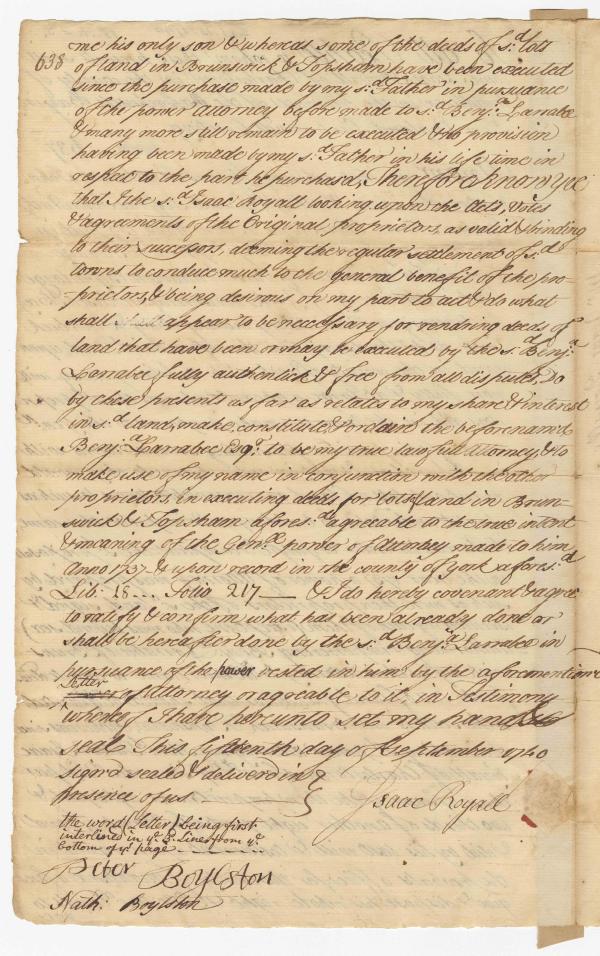 638
me his only son & whereas some of the deeds of s.d lots
of land in Brunswick & Topsham have been executed
since the purchase made by my s.d Father in pursuance
of the power Attorney before made to s.d Benj.a Larrabee
& many more still remain to be executed & no provision
having been made by my s.d Father in his life time in
respect to the part he purchas'd, Therefore know ye
that I the s.d Isaac Royall looking upon the Acts, Votes
& agreements of the Original proprietors, as valid & binding
to their successors, deeming the regular settlement of s.d
towns to conduce much to the general benefit of the pro-
-prietors, & being desirous on my part to act & do what
shall appear to be necessary for rendring deeds of
land that have been or may be executed by the s.d Benj.a
Larrabee fully authentick & free from all disputes, do
by these presents as far as relates to my share & interest
in s.d land, make, constitute & ordain the beforenamed
Benj.a Larrabee Esq.r to be my true lawfull attorney, & to
make use of my name in conjunction with the other
proprietors, in executing deeds for lots of land in Brun-
swick & Topsham afores.d agreable to the true intent
& meaning of the Gen.ll power of Attorney made to him
Anno 1737 & upon record in the county of York afores.d
Lib: 18 -- Folio 217 — & I do hereby covenant & agree
to ratify & confirm what has been already done or
shall be hereafter done by the s.d Benj.a Larrabee in
pursuance of the power vested in him by the aforemention'd
letter
of Attorney or agreable to it, in Testimony
whereof I have hereunto set my hand &
seal This fifteenth day of September 1740
sign'd sealed & deliverd in
presence of us
Isaac Royall
the word (letter) being first
interlined in y.e 8.th Line from y.e
bottom of y.s page
Peter Boylston
Nath: Boylston